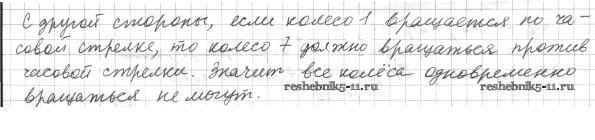 С другой стороны, если колесо 1 вращается по ча-
совой стрелке, то колесо 7 должно вращаться против
часовой стрелки. Значит все колёса одновременно
вращаться не могут.
reshebnik5-11.ru
reshebnik5-11.ru